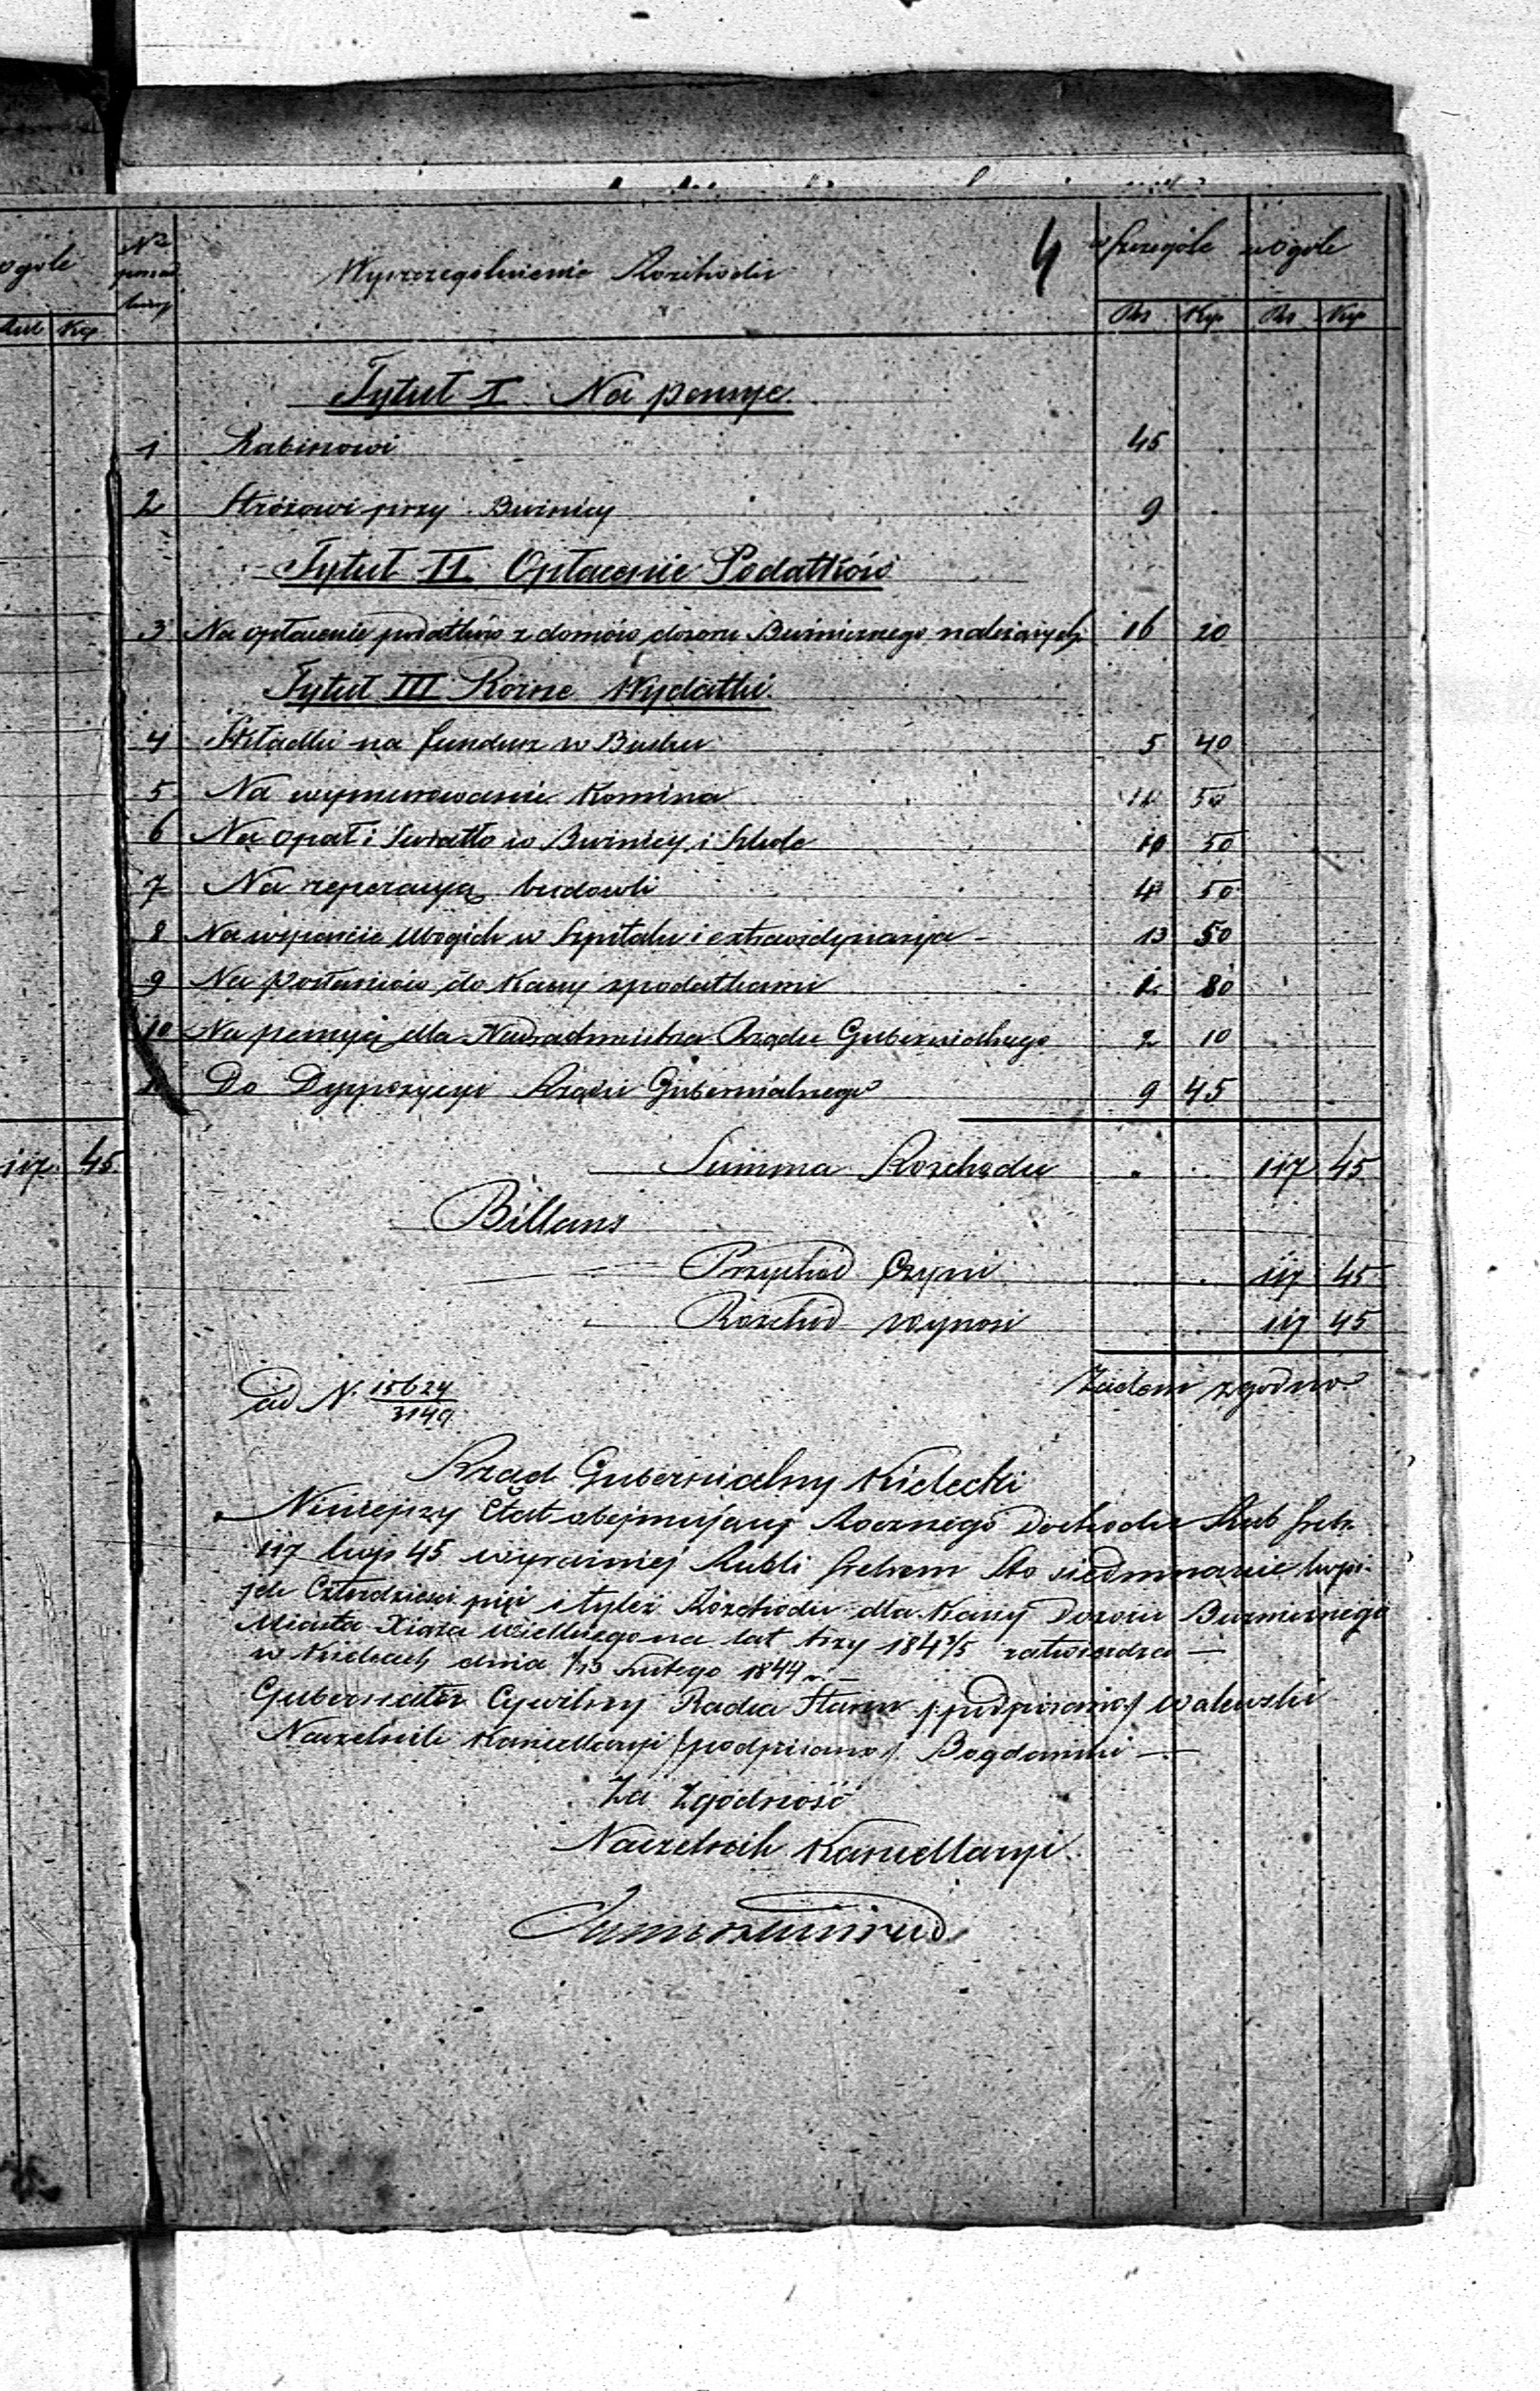 ogóle
Rub Kop
117 45
Nº porząd.
Wyszczególnienie Rozchodu
4
w szczególe w ogóle
Rs Kop Rs Kop
Tytuł I. Na pensye.
1 Rabinowi 45
2 Stróżowi przy Bużnicy 9
Tytuł II. Opłacenie Podatków
3 Na opłacenie podatków z domów dozoru Bużniczego należących 16 20
Tytuł III Różne Wydatki.
4 Składki na fundusz w Busku 5 40
5 Na wymurowanie Komina 50
6 Na opał i światło w Bużnicy i Szkole 10 50
7 Na reperacyą budowli 4 50
8 Na wsparcie ubogich w Szpitalu i extraordynarya - 13 50
9 Na posłańców do Kassy z podatkami 80
10 Na pensyą dla Rządu Gubernialnego 2 10
Do Dyspozycyi Rządu Gubernialnego 9 45
Summa Rozchodu 117 45
Billans
Przychód Czyni 117 45
Rozchód wynosi 117 45
Zatem zgodno
ad N. 15624/3149
Rząd Gubernialny Kielecki
Niniejszy Etat obejmujący Rocznego Dochodu Rub sreb.
117 kop 45 wyraźniej Rubli srebrem Sto siedmnaście kopi-
jek Czterdzieści pięć i tyleż Rozchodu dla Kassy Dozoru Bużniczego
Miasta Xiąża wielkiego na lat trzy 184 3/5 zatwierdza —
w Kielcach dnia 1/13 Lutego 1844 r. —
Gubernator Cywilny Radca Stanu /podpisano/ Walewski
Naczelnik Kancellaryi /podpisano/ Bogdański —
Za Zgodność
Naczelnik Kancellaryi